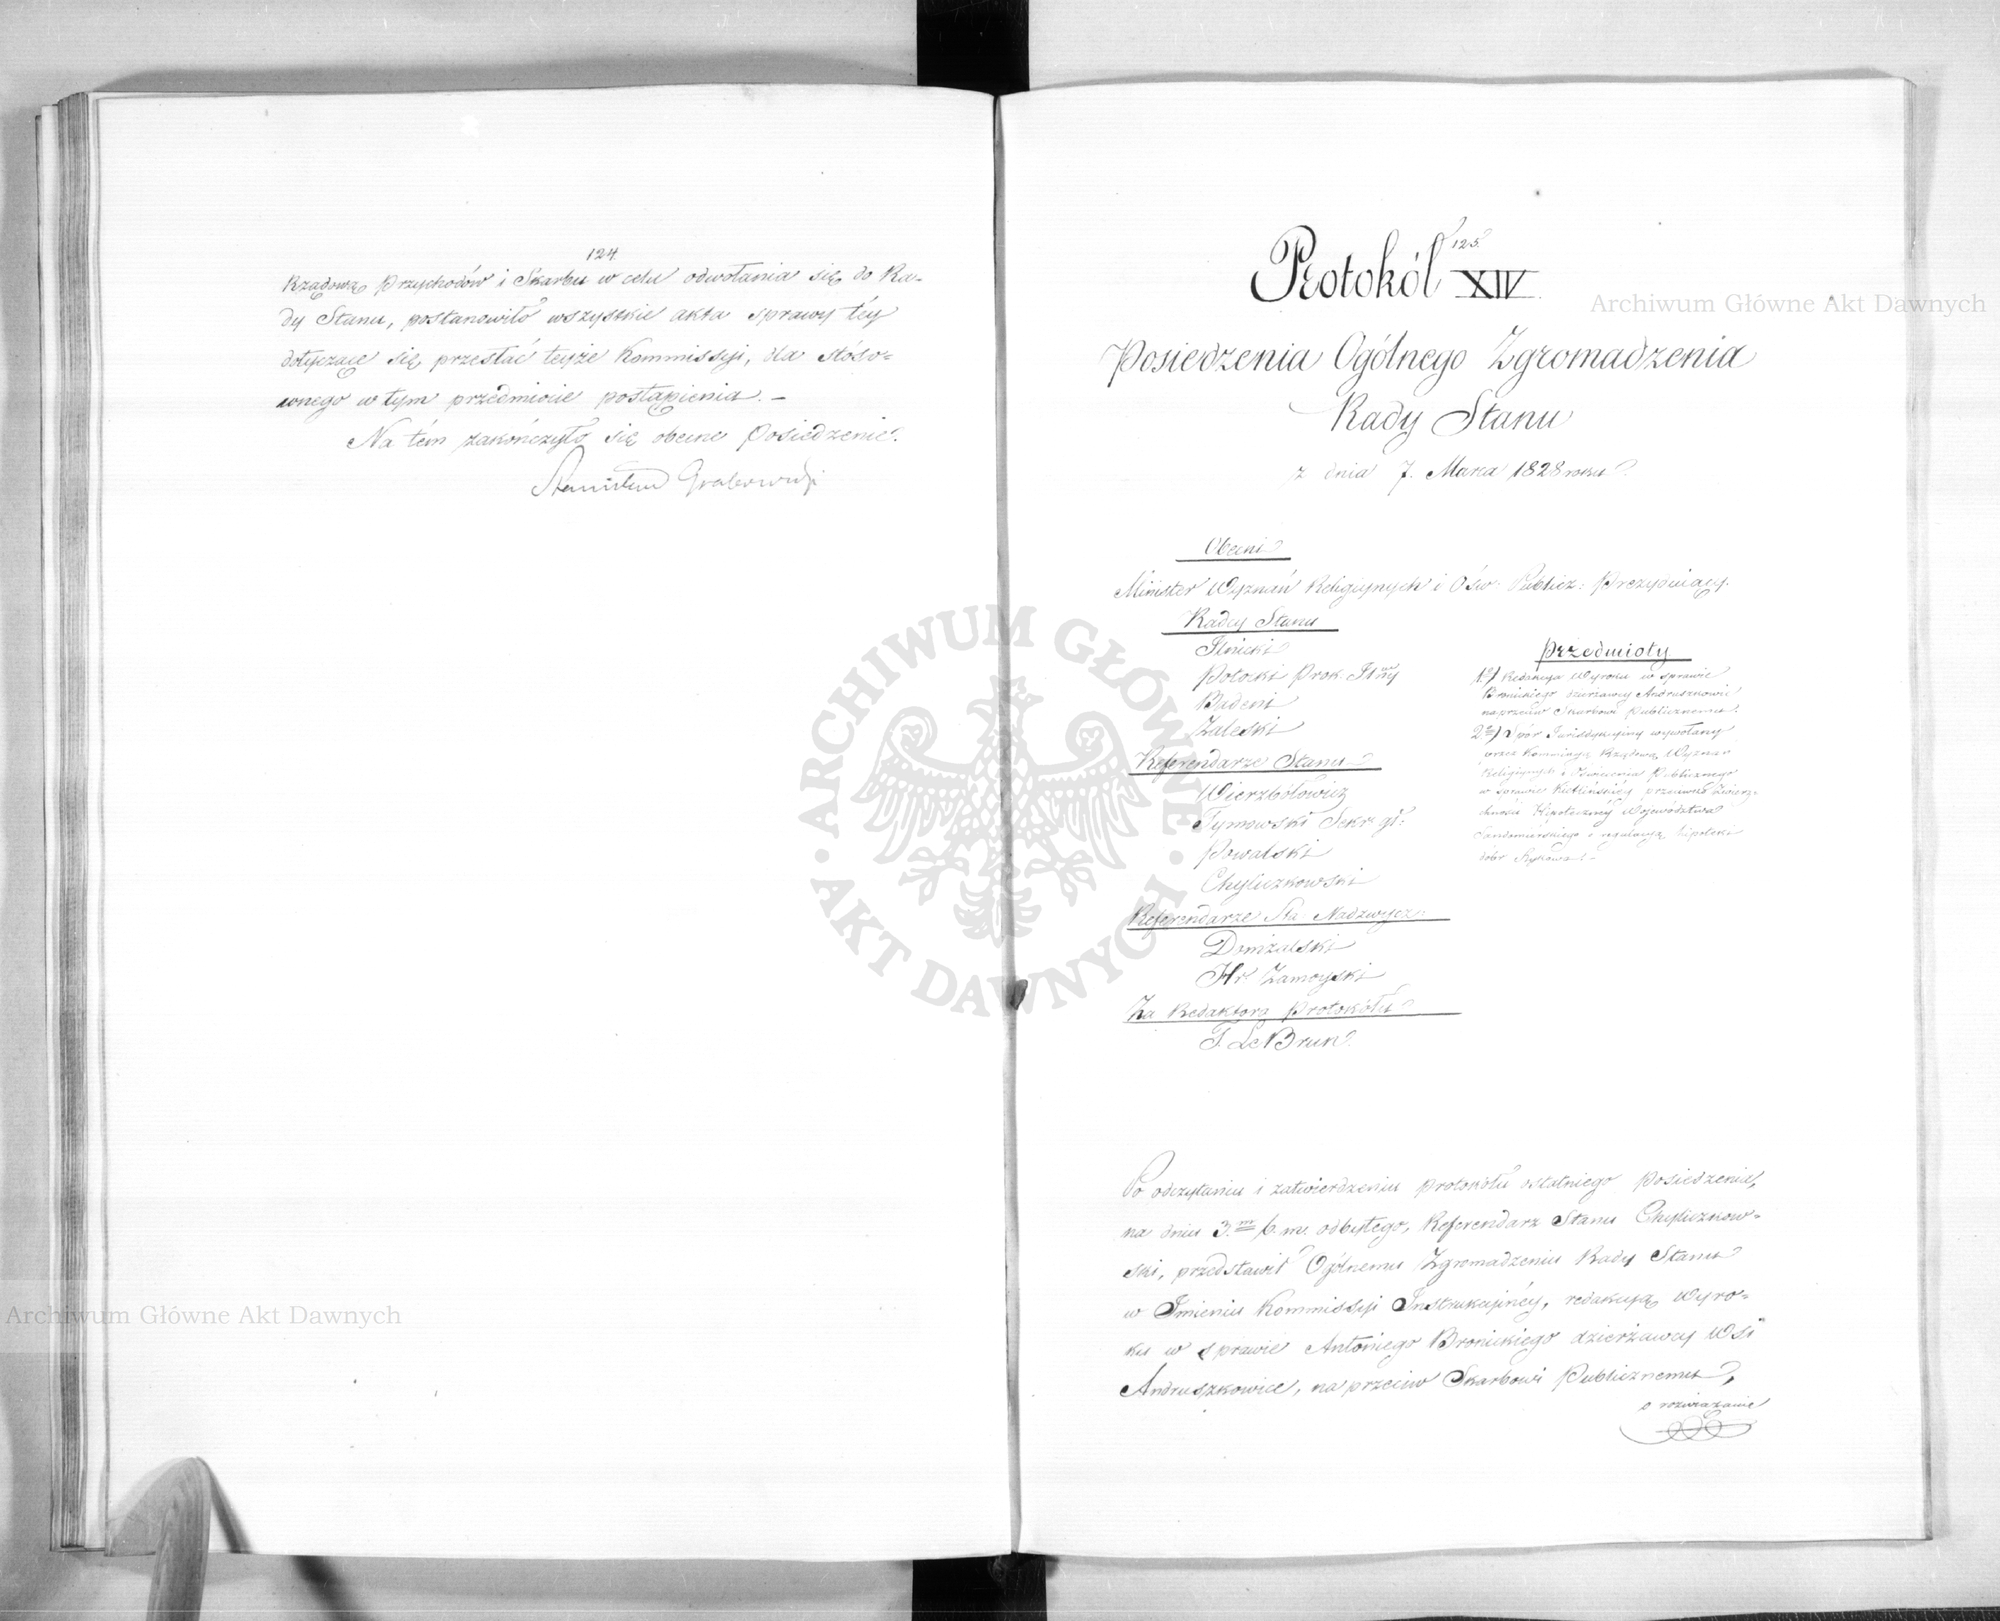 124.
Rządową Przychodów i Skarbu w celu odwołania się do Ra-
dy Stanu, postanowiło wszystkie akta sprawy téy
dotyczące się, przesłać teyże Kommissyi, dla stóso-
wnego w tym przedmiocie postąpienia. –
Na tém zakończyło się obecne Posiedzenie.
Stanisław Grabowski
125.
Protokół XIV
Posiedzenia Ogólnego Zgromadzenia
Rady Stanu
z dnia 7. Marca 1828 roku.
Obecni
Minister Wyznań Religiynych i Ośw: Publicz: Prezyduiący.
Radcy Stanu
Ilnicki
Potocki Prok. Jlny
Badeni
Zaleski
Referendarze Stanu
Wierzbołowicz
Tymowski Sekr. gł:
Powalski
Chyliczkowski
Referendarze Sta: Nadzwycz:
Domżalski
Hr. Zamoyski
Za Redaktora Protokółu
T. Le Brun.
Przedmioty
1o) Redakcya Wyroku w sprawie
Bronickiego dzierżawcy Andruszkowic
na przeciw Skarbowi Publicznemu.
2o) Spór Jurisdykcyiny wywołany
przez Kommissyą Rządową Wyznań
Religiynych i Oświecenia Publicznego
w sprawie przeciwko Zwierz-
chności Hipoteczney Województwa
Sandomirskiego o regulacyą hipoteki
dóbr
Po odczytaniu i zatwierdzeniu protokółu ostatniego posiedzenia,
na dniu 3.m b. m. odbytego, Referendarz Stanu Chyliczkow-
ski, przedstawił Ogólnemu Zgromadzeniu Rady Stanu
w Imieniu Kommissyi Instrukcyinéy, redakcyą Wyro-
ku w sprawie Antoniego Bronickiego dzierżawcy Wsi
Andruszkowice, na przeciw Skarbowi Publicznemu,
o rozwiązanie
Archiwum Główne Akt Dawnych
ARCHIWUM GŁÓWNE · AKT DAWNYCH ·
Archiwum Główne Akt Dawnych